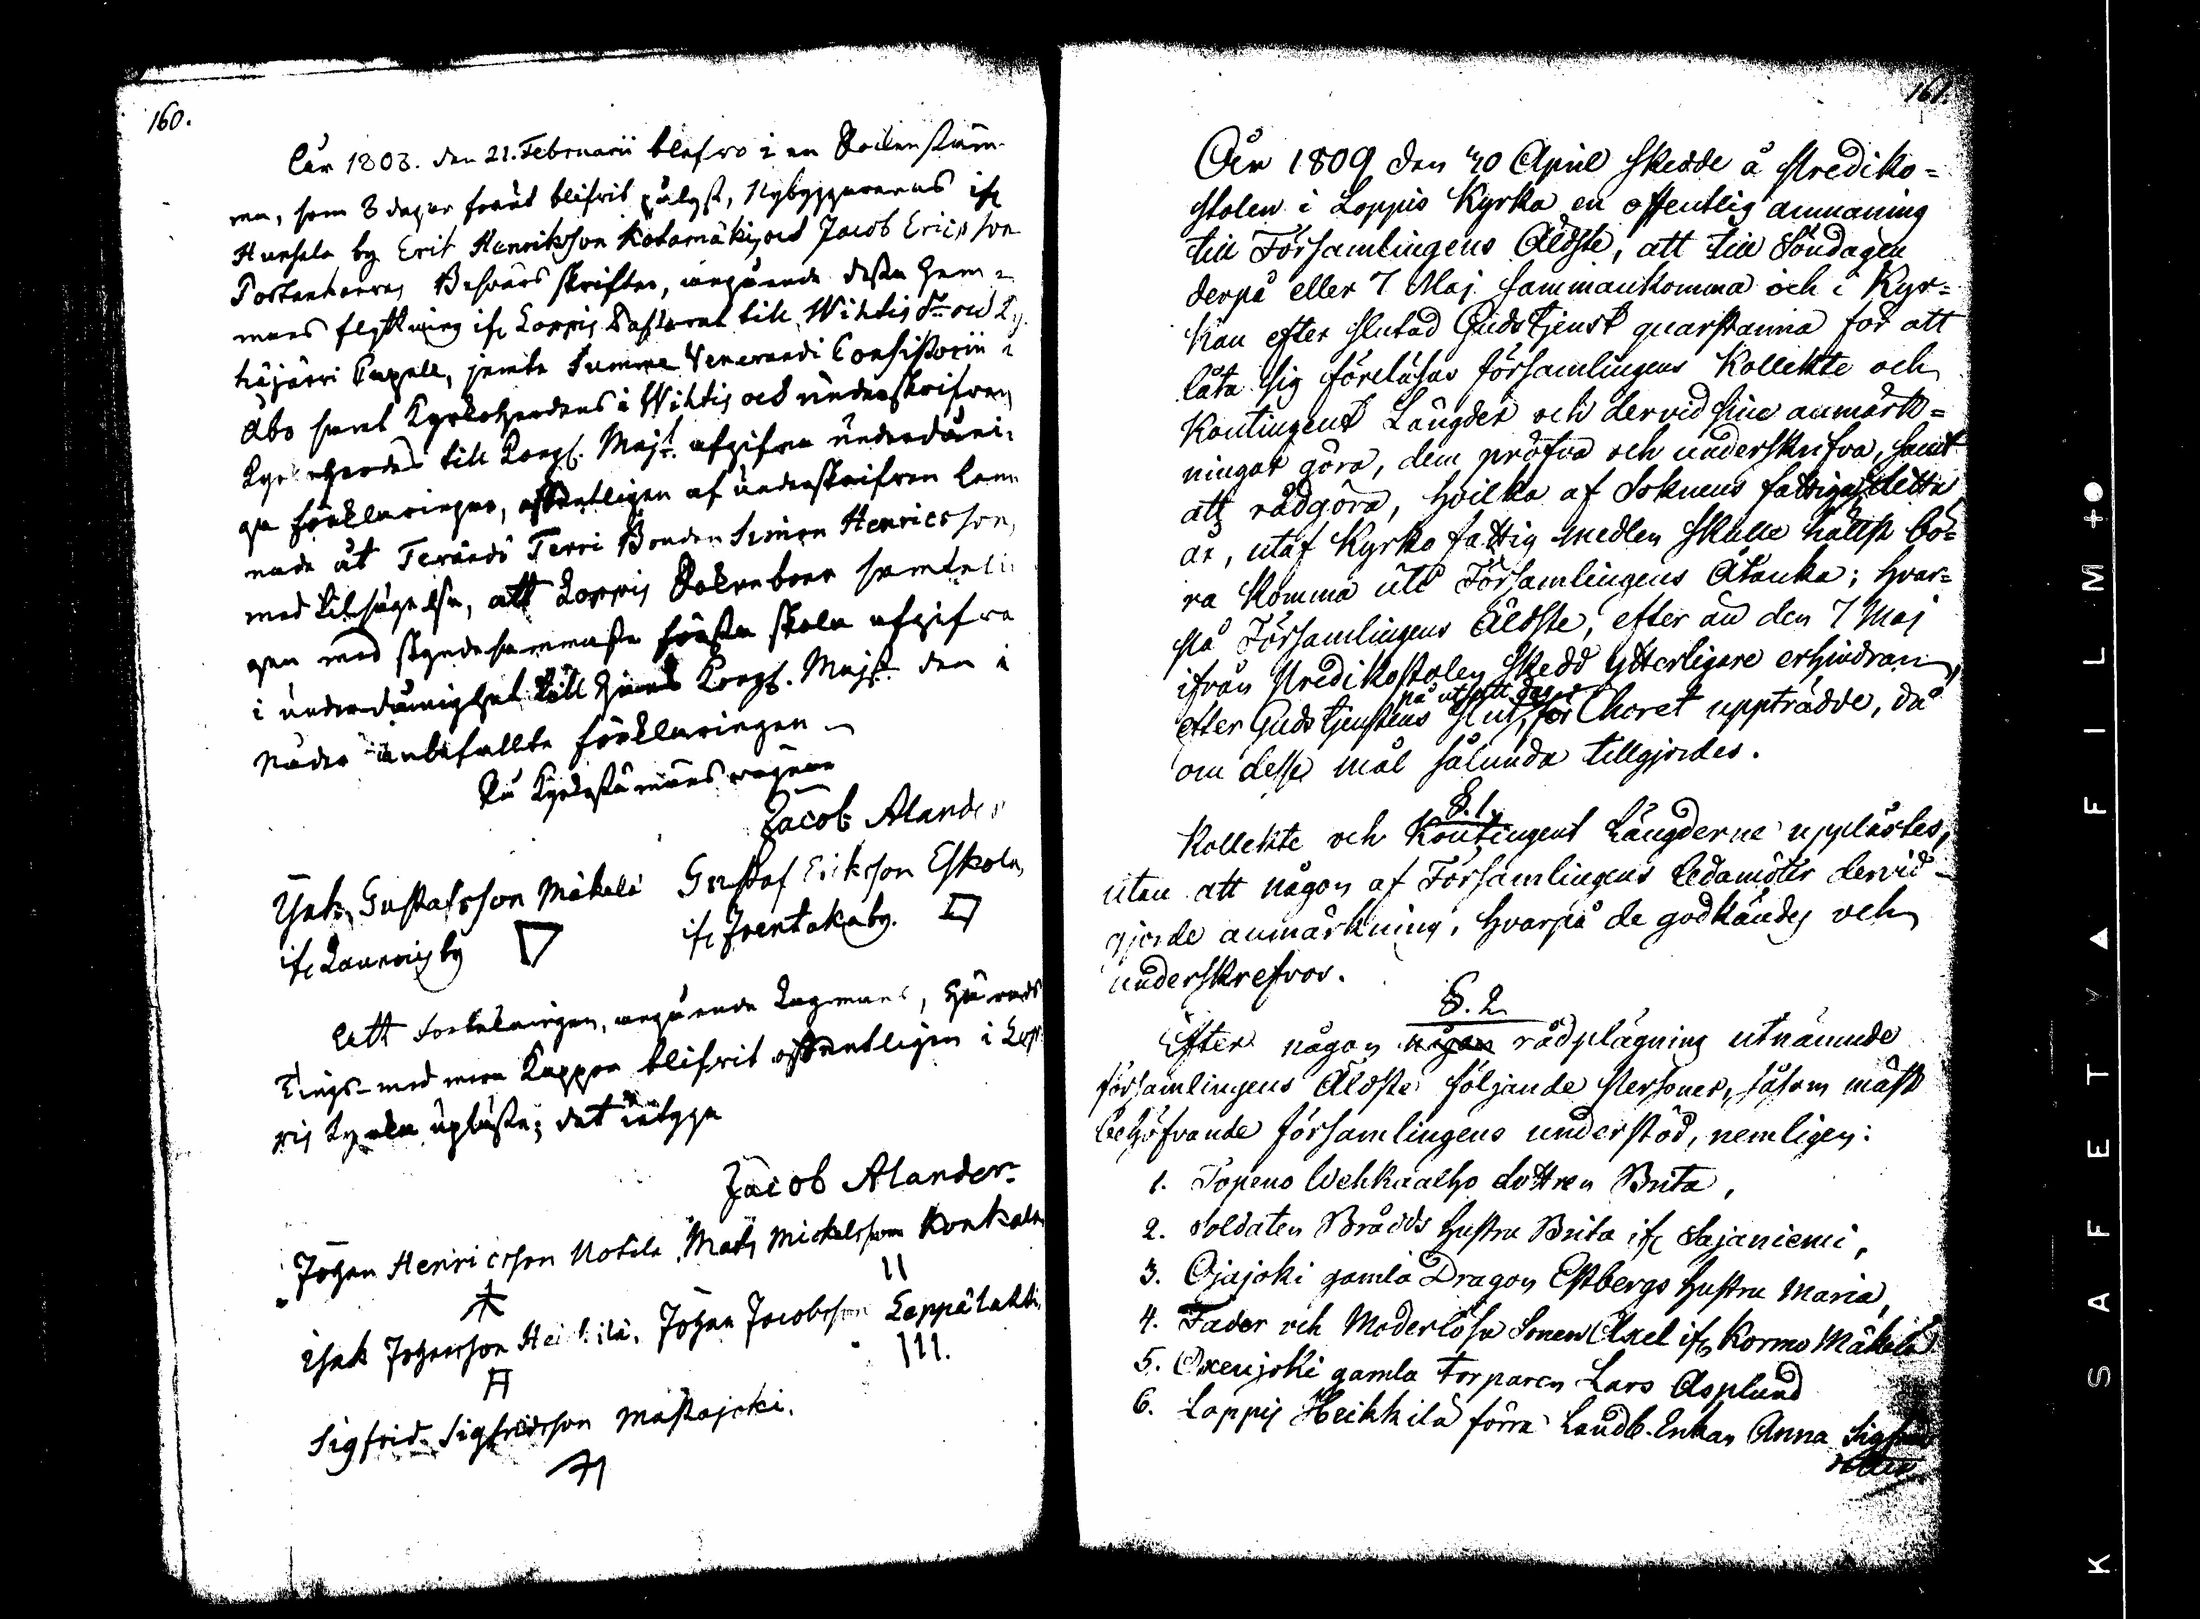 160.
År 1808. den 21. Februarii blefvo i en Sockenstäm-
ma, som 8 dagar förut blifvit pålyst, Nybyggarenas if
Hunsala by Erik Henriksson Kotamäki, och Jacob Ericsson
Besvärs skrifter, angående dessa hem-
mans flyttning if Loppis Pastorat till Wihtis Sn och Py-
häjärvi Capell, jemte Summe Venerandi Consistorii i
Åbo samt Kyrkoherdens i Wihtis och underskrifven
Kyrkoherdes till Kongl. Majt. afgifna underdåni-
ga förklaringar, offentligen af underskrifven läm-
nade åt Terändö Terri Bonden Simon Henricsson,
med tilsägelse, att Loppis Soknboer samteli-
gen med skyndesammaste första skola afgifva
i underdånighet till Hans Kongl. Majt. den i
Nåder anbefallte förklaringen
På Kyrkostämmans vägnar
Jacob Alander
Isak Gustafsson Mäkelä Gustaf Eriksson Eskola
if Launois by if Joentaka by.
Att förteckningen, angående Lagmans, Härads
Tings- med mera Kappar blifvit offentligen i Lop-
pis Kyrka upläste; det intyga
Jacob Alander
Johan Henricsson Uotila Mats Mickelsson Konkala
II
Isak Johansson Heikkilä. Johan Jacobsson Leppälahti
III.
Sigfrid Sigfridsson Mastajoki.
161.
År 1809 den 30 April skedde å Prediko-
stolen i Loppis Kyrka en offentlig anmaning
till Församlingens Äldste, att till Söndagen
derpå eller 7 Maj sammankomma och i Kyr-
kan efter slutad Gudstjenst quarstanna för att
låta sig föreläsas församlingens Kollekte och
Kontingent Längder och dervid sine anmärk-
ningar göra, dem pröfva och underskrifva, samt
att rådgöra, hvilka af Soknens fattiga detta
år, utaf Kyrko fattig medlen skulle hällst bö-
ra komma uti Församlingens Åtanka; hvar-
på Församlingens Äldste, efter än den 7 Maj
ifrån Predikostolen skedd ytterligare erhindran,
på utsatt dag
efter Gudstjenstens slut, för Choret uppträdde, då
om desse mål sålunda tillgjordes.
§. 1.
Kollekte och Kontingent Längderne uppläste,
utan att någon af Församlingens Ledamöter dervid
gjorde anmärkning, hvarpå de godkändes och
underskrefvos.
§. 2.
Efter någon någon rådplägning utnämnde
församlingens Äldste följande Personer, såsom mäst
behöfvande församlingens understöd, nemligen:
1. Topeno Wehkaalho dottren Brita,
2. Soldaten Brådds hustru Brita if Sajaniemi,
3. Ojajoki gamla Dragon Estbergs hustru Maria,
4. Fader och Moderlösa Sonen Axel if Kormo Mäkelä
5. Oxenjoki gamla torparen Lars Asplund
6. Loppis Heikkilä förra Landb. Enkan Anna Sigfrids
dotter
K S A F E T Y ▲ F I L M